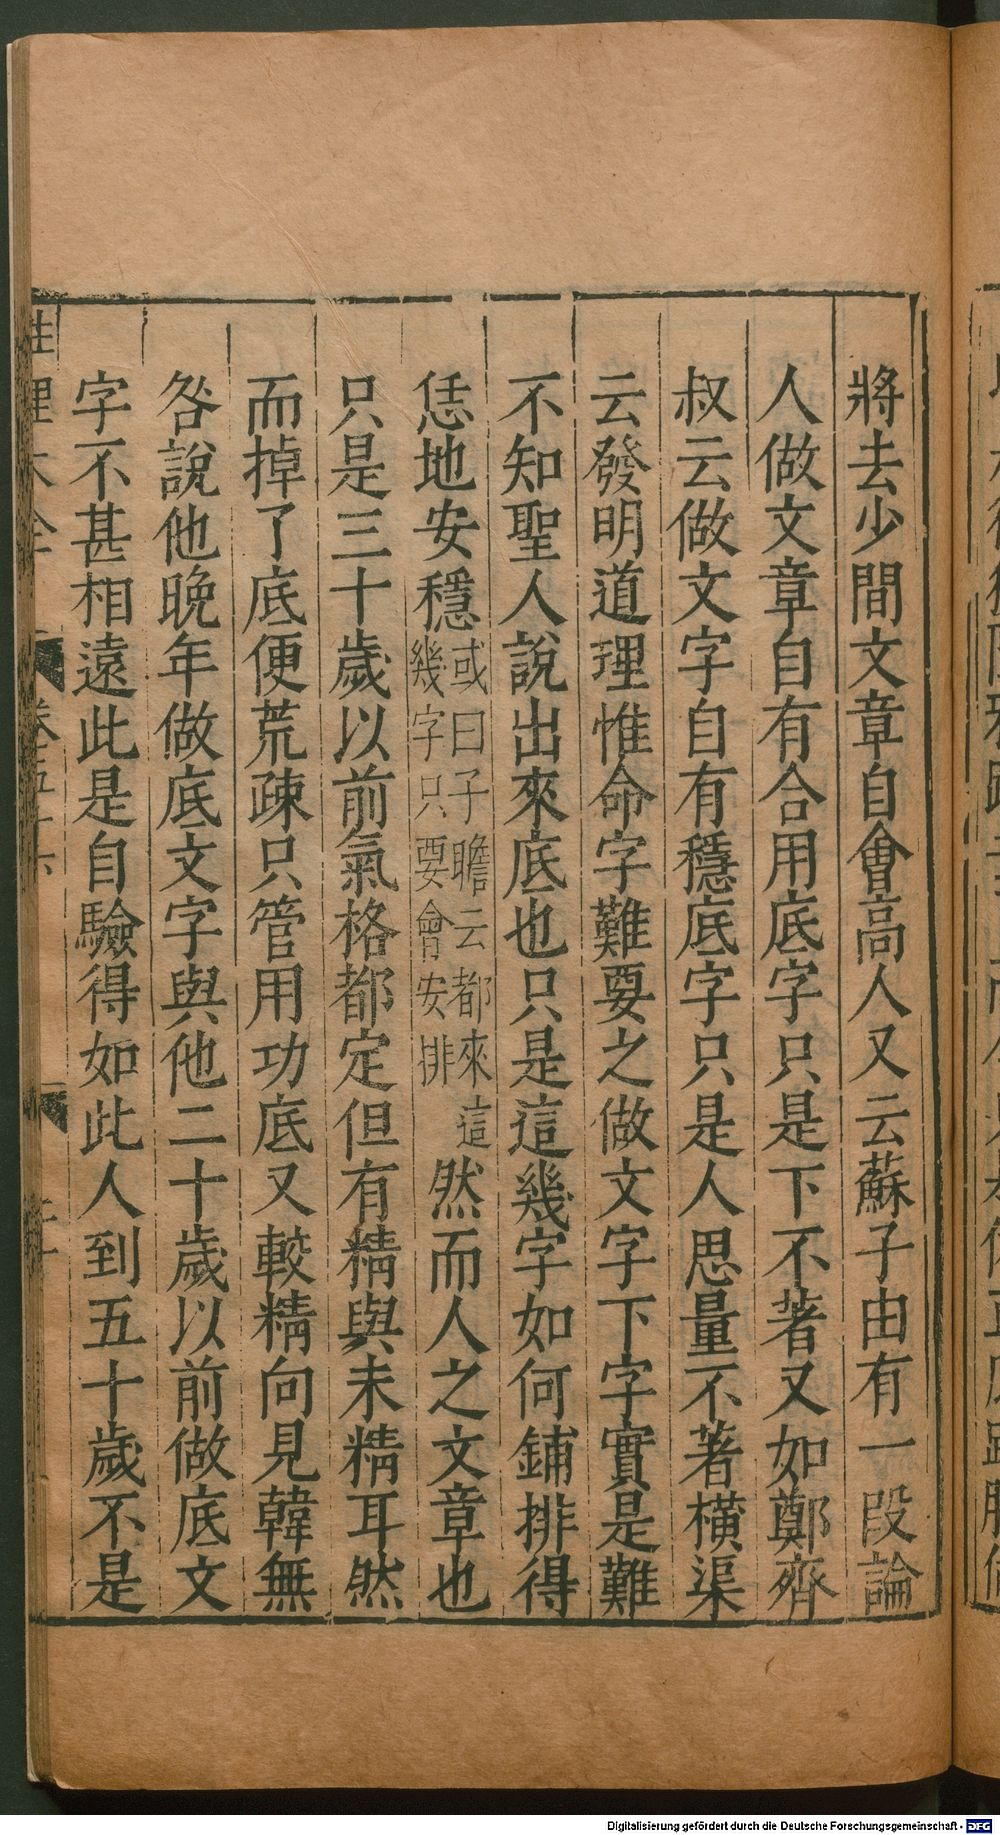 將去少間文章自會高人又云蘇子由有一段論
人做文章自有合用底字只是下不著又如鄭齊
叔云做文字自有穩底字只是人思量不著橫渠
云發明道理惟命字難要之做文字下字實是難
不知聖人說出來底也只是這幾字如何鋪排得
恁地安穩或曰子瞻云都來這幾字只要會安排然而人之文章也
只是三十歲以前氣格都定但有精與未精耳然
而掉了底便荒疎只管用功底又較精向見韓無
咎說他晚年做底文字與他二十歲以前做底文
字不甚相遠此是自驗得如此人到五十歲不是
性理大全 卷五十六
Digitalisierung gefördert durch die Deutsche Forschungsgemeinschaft - DFG